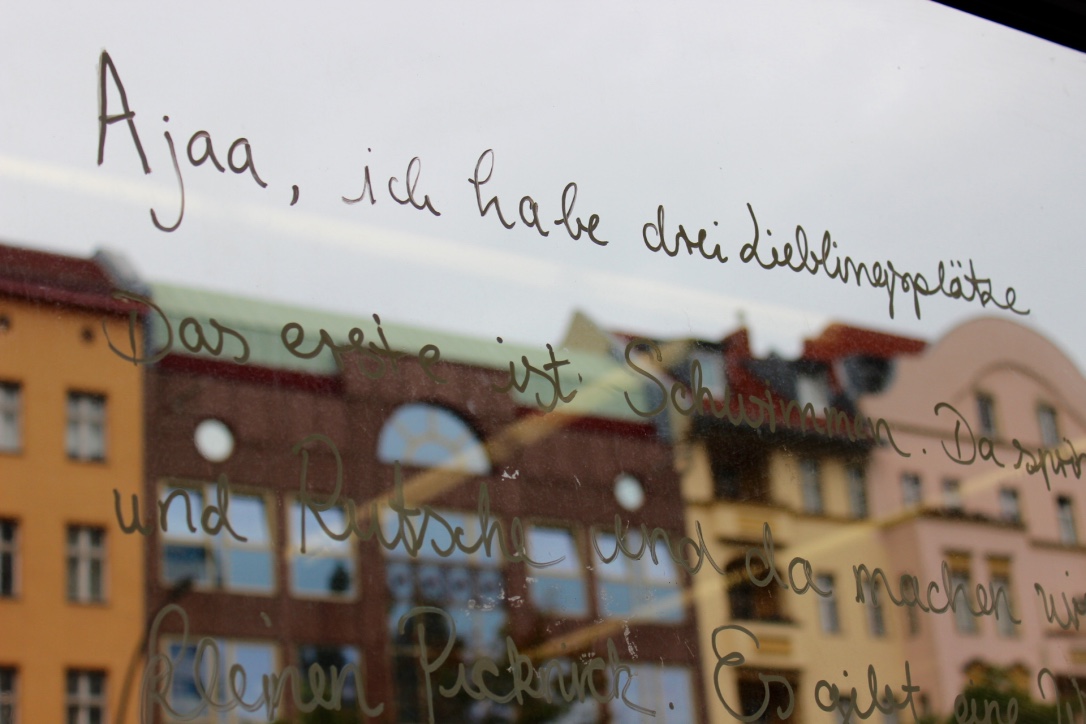 Ajaa, ich habe drei Lieblingsplätze
Das erste ist Schwimmen. Da
und Rutsche und da machen wir
kleinen Picknick. Es gibt eine